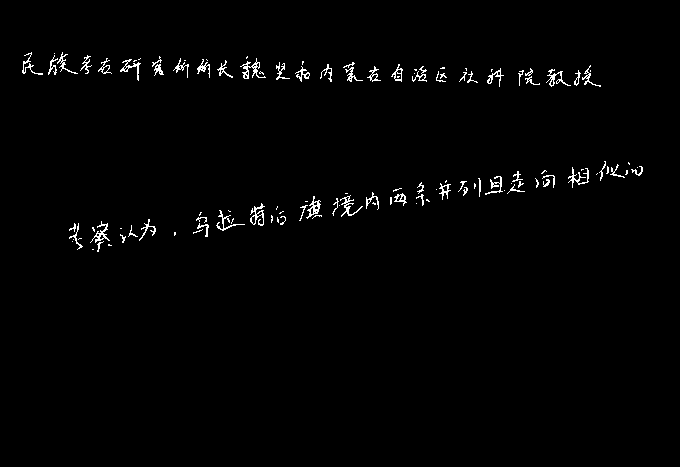 民族考古研究所所长魏坚和内蒙古自治区社科院教授
考察认为，乌拉特后旗境内两条并列且走向相似的